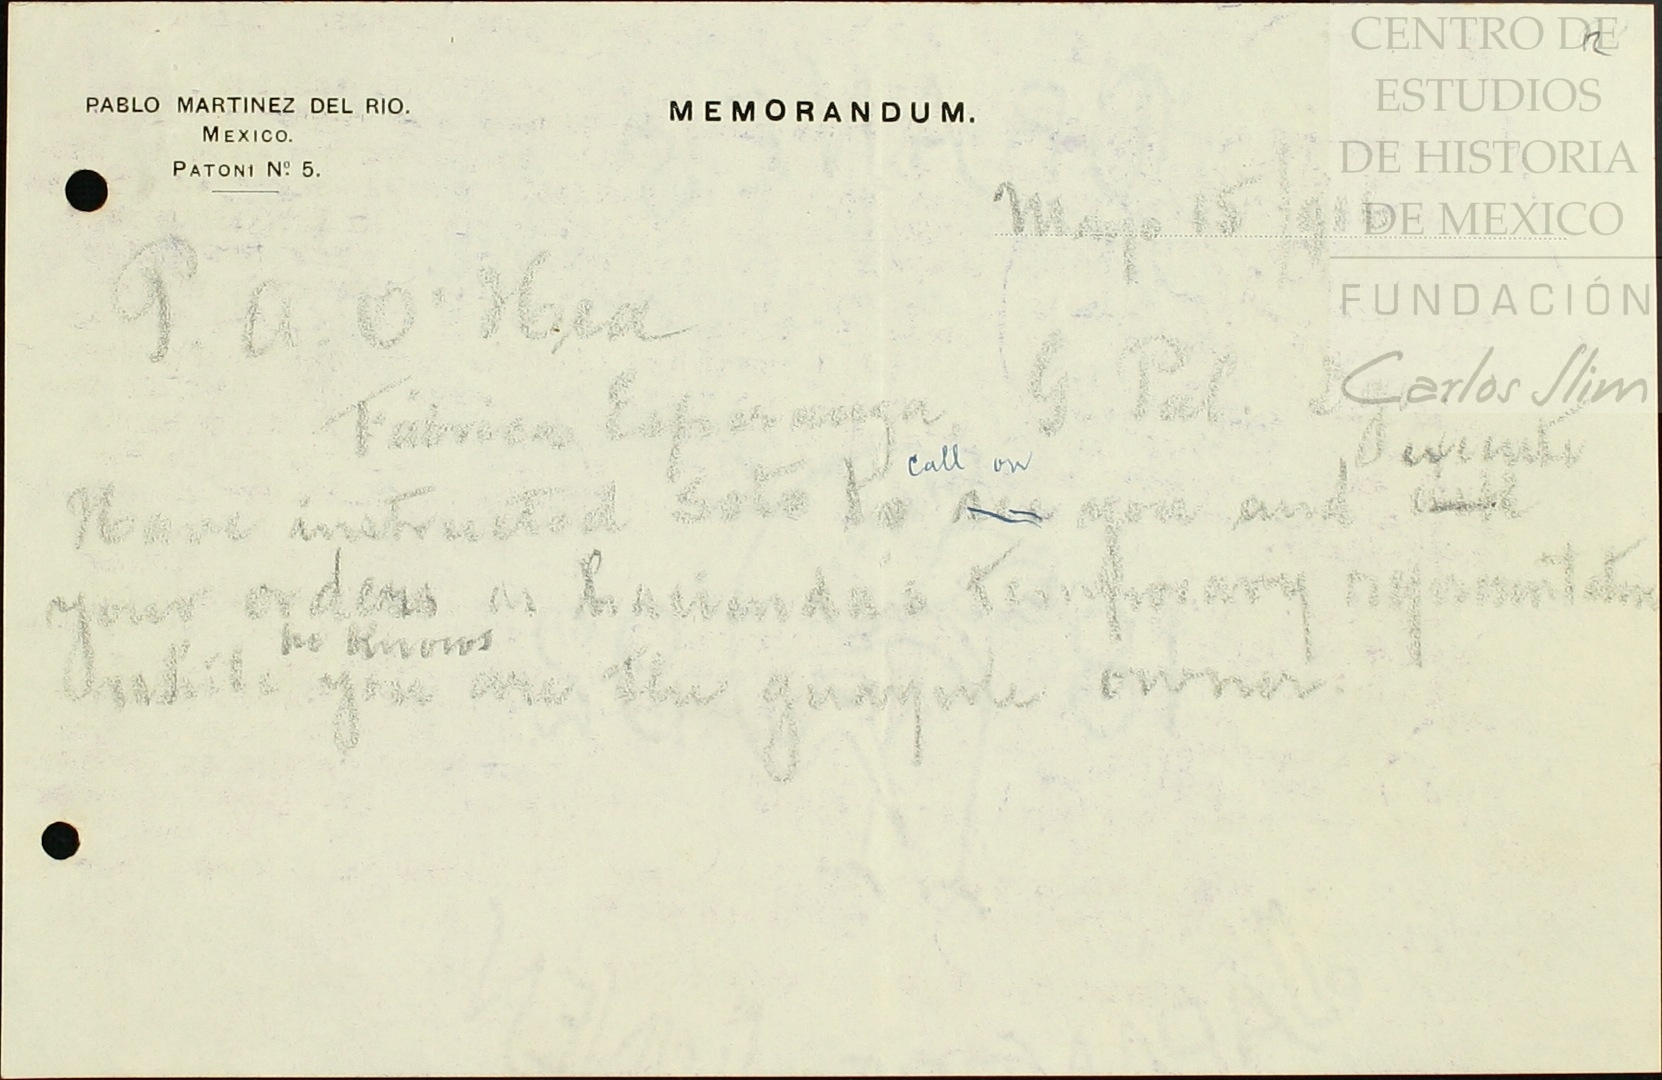 PABLO MARTINEZ DEL RIO.
MEXICO.
PATONI Nº 5.
MEMORANDUM.
CENTRO DE
ESTUDIOS
DE HISTORIA
DE MEXICO
FUNDACIÓN
Carlos Slim
Mayo 15/916
P. A. O'Hea
Fabrica Esperanza, G. Pal. Dgo
call on execute
Have instructed Soto to see you and ask
your orders as hacienda's temporary representative
he knows
while you are the guayule owner.